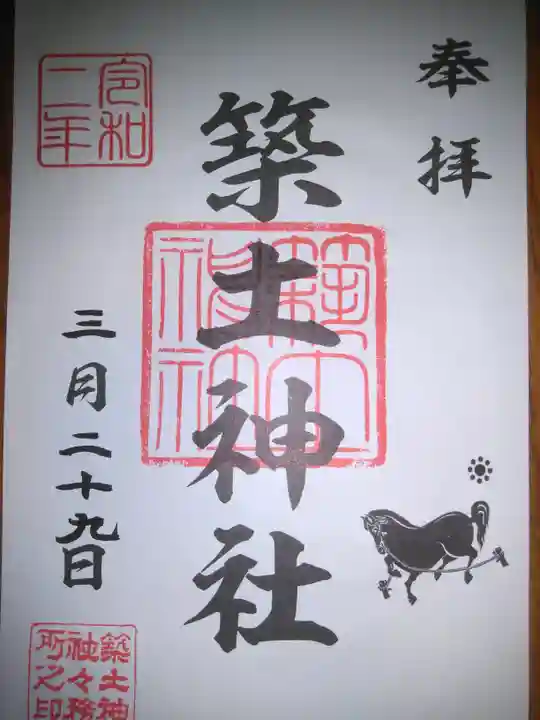 奉拝
築土神社
築土神社
令和
二年
三月二十九日
築土神
社々務
所之印